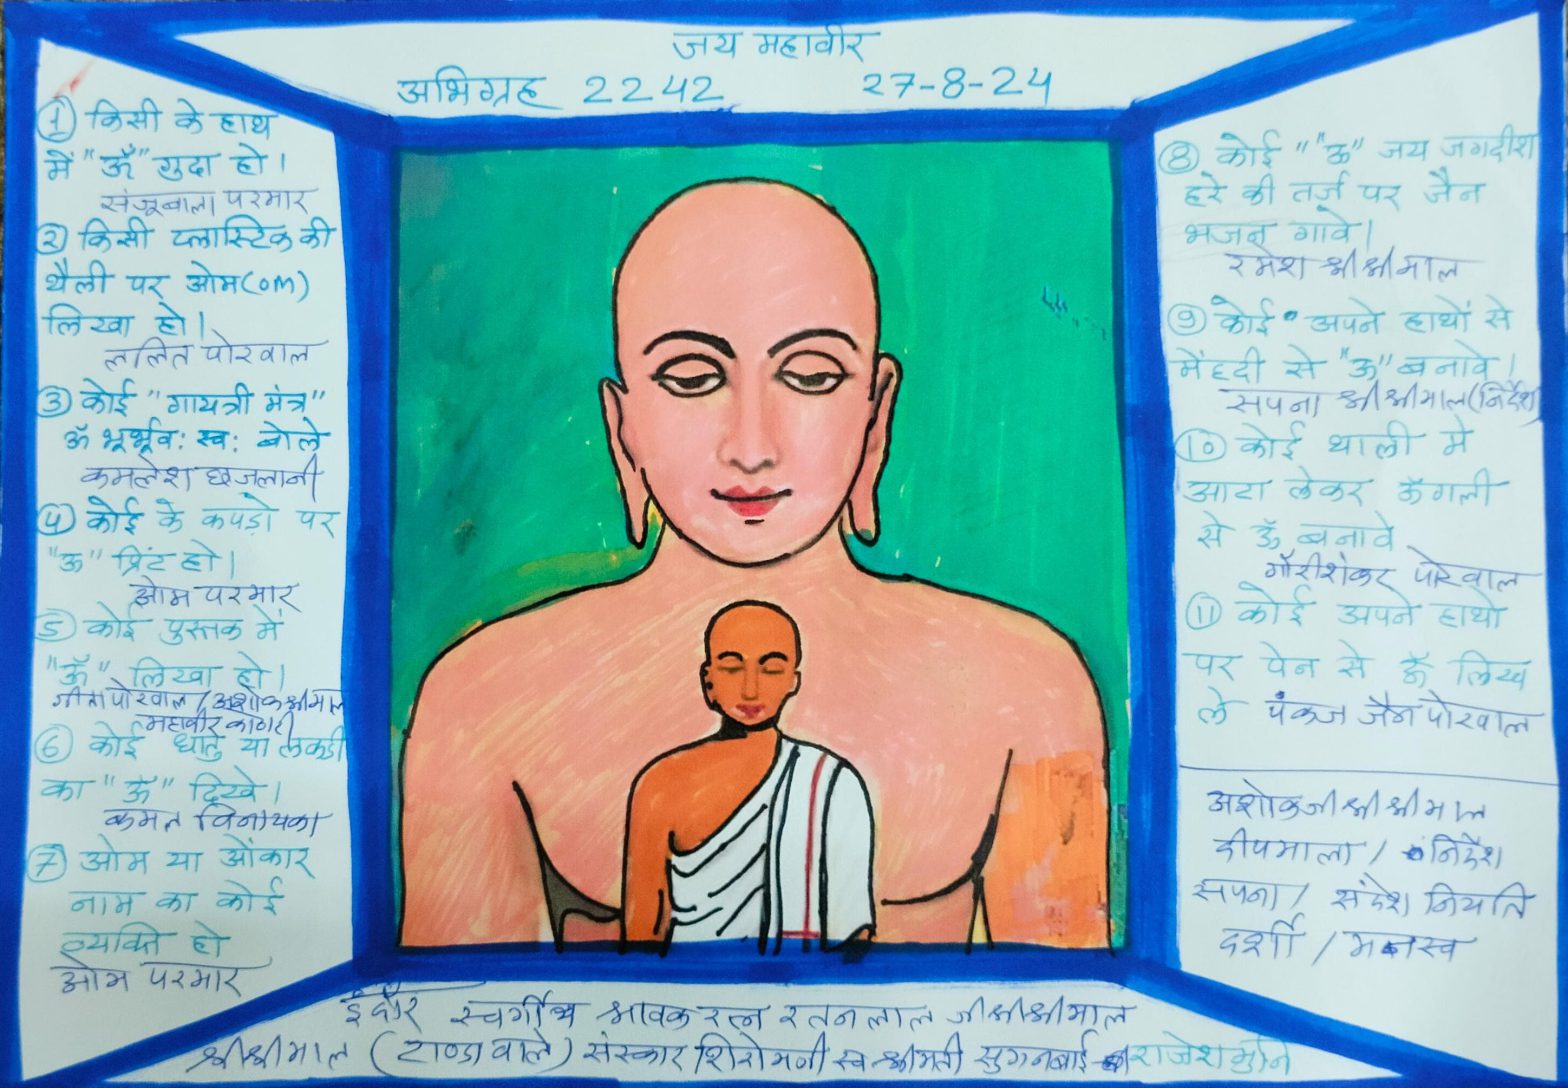 जय महावीर
अभिग्रह 2242 27-8-24
① किसी के हाथ
में "ॐ" गुदा हो।
संजूबाला परमार
② किसी प्लास्टिक की
थैली पर ओम(om)
लिखा हो।
ललित पोरवाल
③ कोई "गायत्री मंत्र"
ॐ भूर्भूवः स्वः बोले
कमलेश छजलानी
④ कोई के कपड़ो पर
"ॐ" प्रिंट हो।
ओम परमार
⑤ कोई पुस्तक में
"ॐ" लिखा हो।
गीता पोरवाल / अशोक श्रीश्रीमाल
महावीर
⑥ कोई धातु या लकडी
का "ॐ" दिखे।
कमल विनायका
⑦ ओम या ओंकार
नाम का कोई
व्यक्ति हो
ओम परमार
⑧ कोई "ॐ" जय जगदीश
हरे की तर्ज पर जैन
भजन गावे।
रमेश श्रीश्रीमाल
⑨ कोई अपने हाथों से
मेंहदी से "ॐ" बनावे।
सपना श्रीश्रीमाल(निर्देश)
⑩ कोई थाली मे
आटा लेकर ऊँगली
से ॐ बनावे
गौरीशंकर पोरवाल
⑪ कोई अपने हाथो
पर पेन से ॐ लिख
ले पंकज जैन पोरवाल
अशोकजी श्रीश्रीमाल
दीपमाला / निर्देश
सपना / संदेश नियति
दर्शी /
इंदौर स्वर्गीय श्रावक रत्न रतनलाल जी श्रीश्रीमाल
श्रीश्रीमाल (टाण्डावाले) संस्कार शिरोमनी स्व श्रीमती सुगनबाई राजेशमुनि